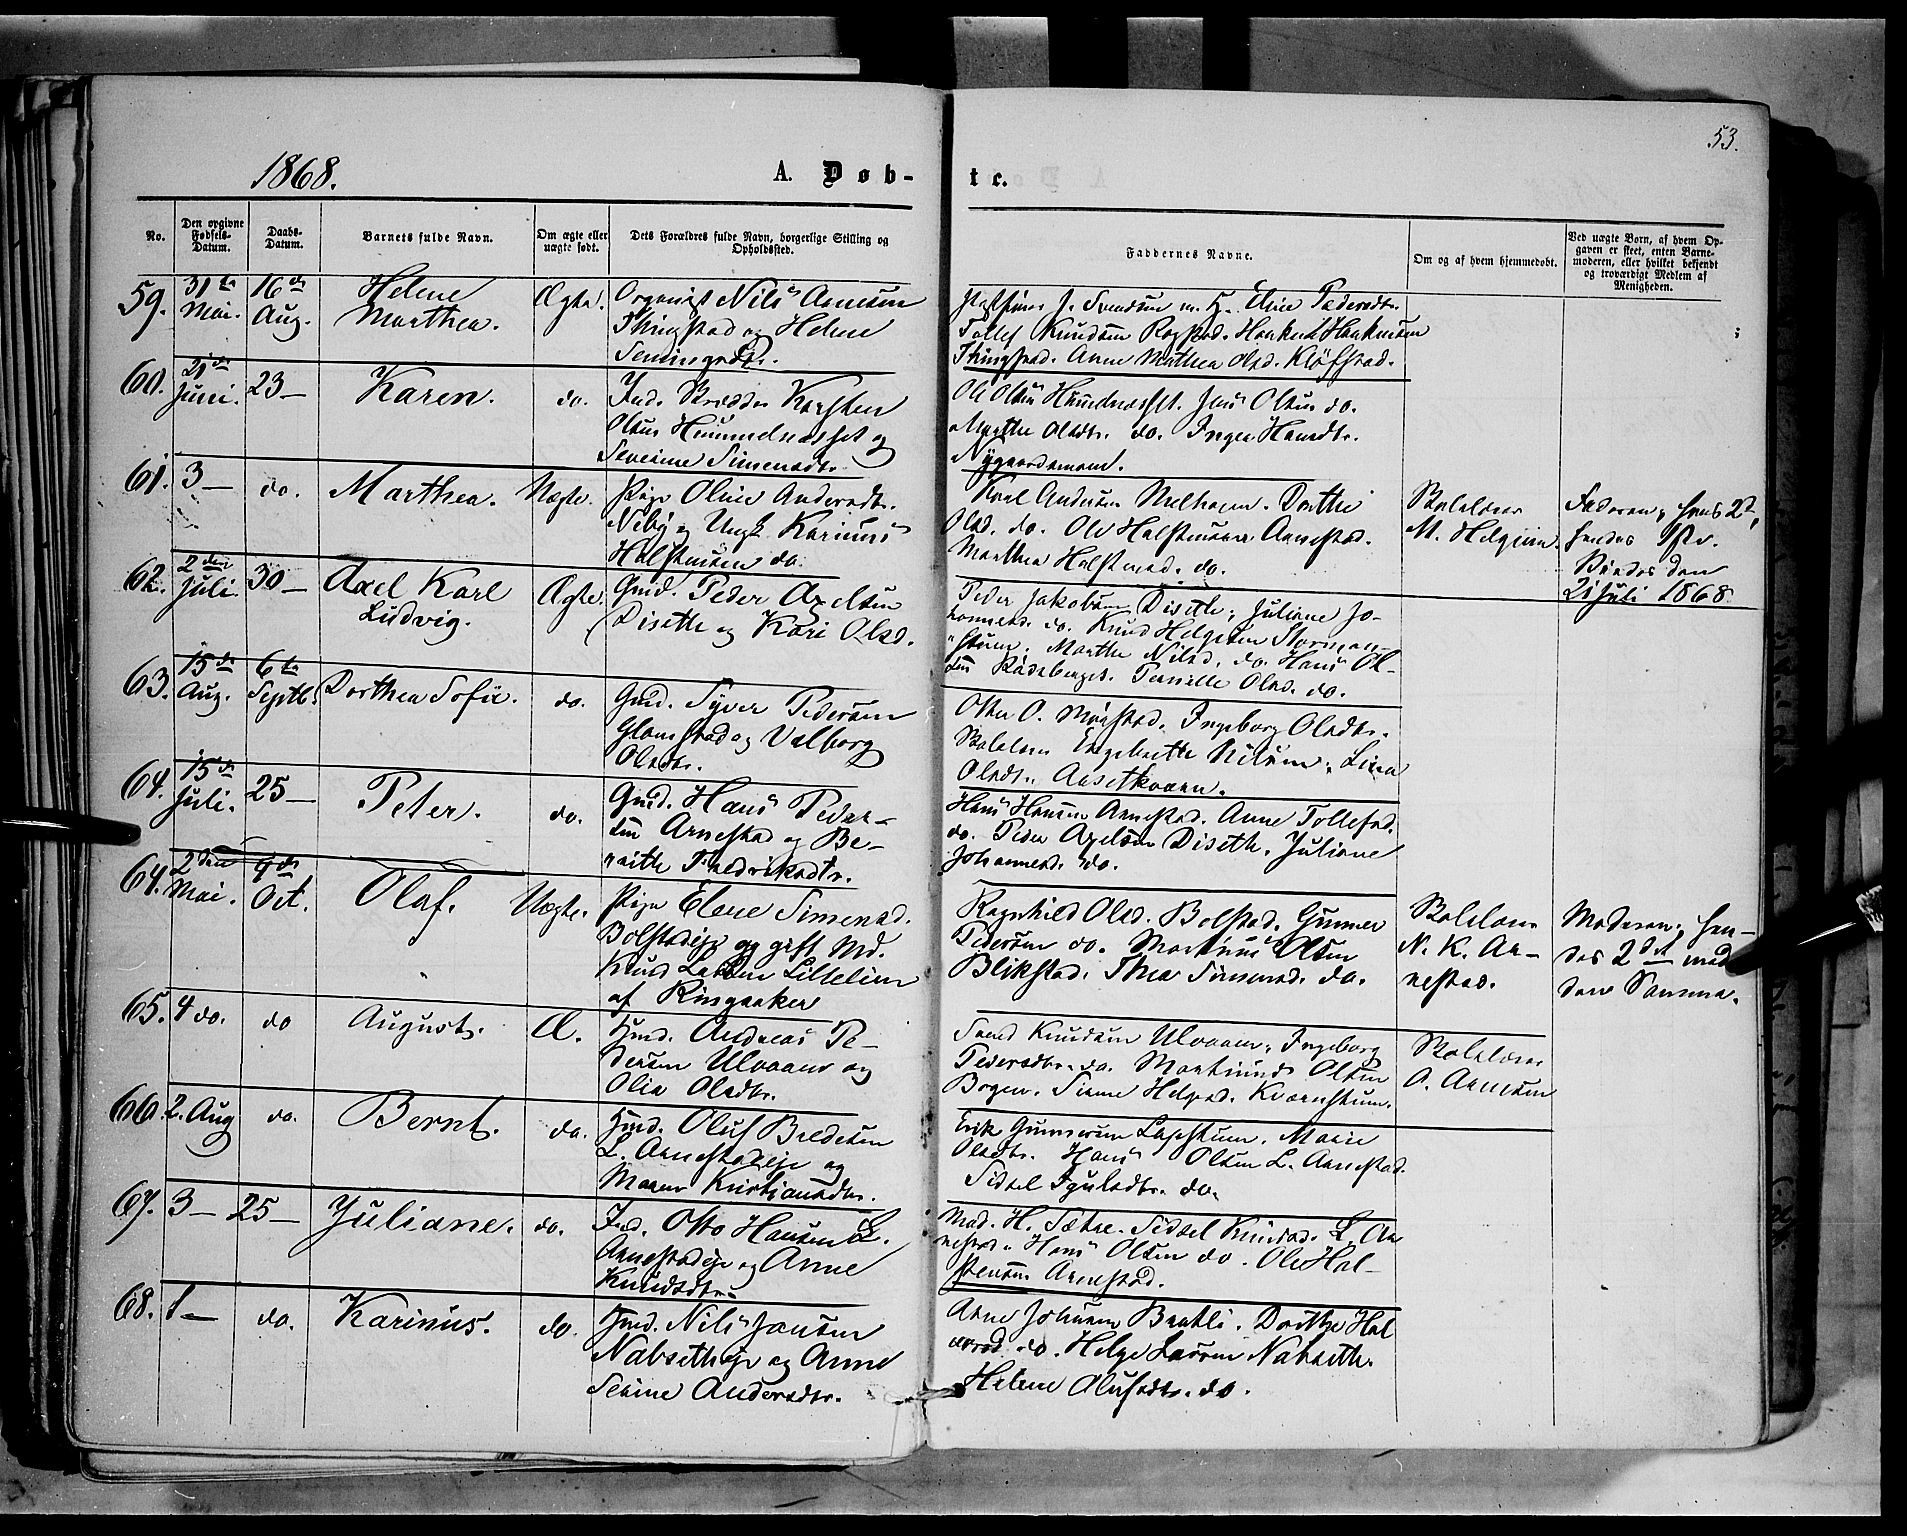 53.
1868.
A. Døb-
te.
No.
Den opgivne Fødsels-Datum.
Daabs-Datum.
Barnets fulde Navn.
Om ægte eller uægte født.
Dets Forældres fulde Navn, borgerlige Stilling og Opholdssted.
Faddernes Navne.
Om og af hvem hjemmedøbt.
Ved uægte Børn, af hvem Op-
gaven er skeet, enten Barne-
moderen, eller hvilket bekjendt
og troværdigt Medlem af
Menigheden.
59. 31te Mai. 16de Aug. Helene Marthea. Ægte.
Nils Arnesen
Thingstad og Helene
J. Svendsen m. H. Eline Pedersdtr.
Tollef Knudsen Rogstad. Haakon Haakensen
Thingstad. Anne Mathea Olsd. Kløfstad.
60. 21de Juni. 23 — Karen. do.
Ind. Karsten
Olsen Hummelnæsset og
Severine Simensdtr.
Ole Olsen Hummelnæsset. Jens Olsen do.
Marthe Olsdtr. do. Inger Hansdtr.
61. 3 — do. Marthea. Uægte.
Pige Oline Andersdtr.
Neby og Ungk. Karinus
Halstensen do.
Karl Andersen Melheim. Dorthe
Olsd. do. Ole Halstensen Arnestad.
Marthea Halstensd. do.
Skolelærer
M. Helgesen.
Faderen; hans 2d,
hendes 1ste.
den
21 Juli 1868.
62. 2den Juli 30 — Axel Karl Ludvig. Ægte.
Gmd. Peder Axelsen
Diseth og Kari Olsd.
Peder Jakobsen Diseth; Juliane Jo-
hannesd. do. Knud Helgesen
Marthe Nilsd. do. Hans Ol-
sen Pernille Olsd. do.
63. 15de Aug. 6te Septb. Dorthea Sofie. do.
Gmd. Syver Pedersen
Glomstad og Valborg
Olsdtr.
Otter O. Ingeborg Olsdtr.
Skolelærer Engebrette Nilsen, Lina
Olsdtr.
64. 15de Juli. 25 — Peter. do.
Gmd. Hans Peder-
sen Arnestad og Be-
reithe Fredriksdtr.
Hans Hansen Arnestad. Anne Tollefsd.
do. Peder Axelsen Diseth. Juliane
Johannesd. do.
64. 2den Mai. 9de Oct. Olaf. Uægte.
Pige Elene Simensd.
Bolstadeje og gift Md.
Knud Larsen Lillelien
af Ringsaker
Ragnhild Olsd. Bolstad. Gunner
Pedersen do. Martinus Olsen
Blikstad. Thea Simensd. do.
Skolelærer
N. K. Ar-
nestad.
Moderen; hen-
des 2det med
den Samme.
65. 4 do. do August. Æ.
Hmd. Andreas Pe-
dersen Ulvaaen og
Olia Olsdtr.
Svend Knudsen Ulvaaen. Ingeborg
Pedersdtr. do. Martinus Olsen
Bogen. Helgesd. Kværnstuen.
Skolelærer
O. Arnesen
66. 2. Aug do. Bernt. do.
Hmd. Oluf Bredesen
L. Arnestadeje og
Maren Kristiansdtr.
Erik Gunnersen Marie
Olsdtr. Hans Olsen L. Arnestad.
Sidsel do.
67. 3 — 25 — Juliane. do.
Ind. Otto Hansen L.
Arnestadeje og Anne
Knudsdtr.
Mad. H. Sætre. Sidsel Knudsd. L. Ar-
nestad. Hans Olsen do. Ole Hal-
stensen Arnestad.
68. 1 — do. Karinus. do.
Hmd. Nils Jansen
Nabsetheje og Anne
Severine Andersdtr.
Arne Johansen Bratli. Dorthe Hal-
vorsd do. Helge Larsen Nabseth.
Helene Olufsdtr. do.